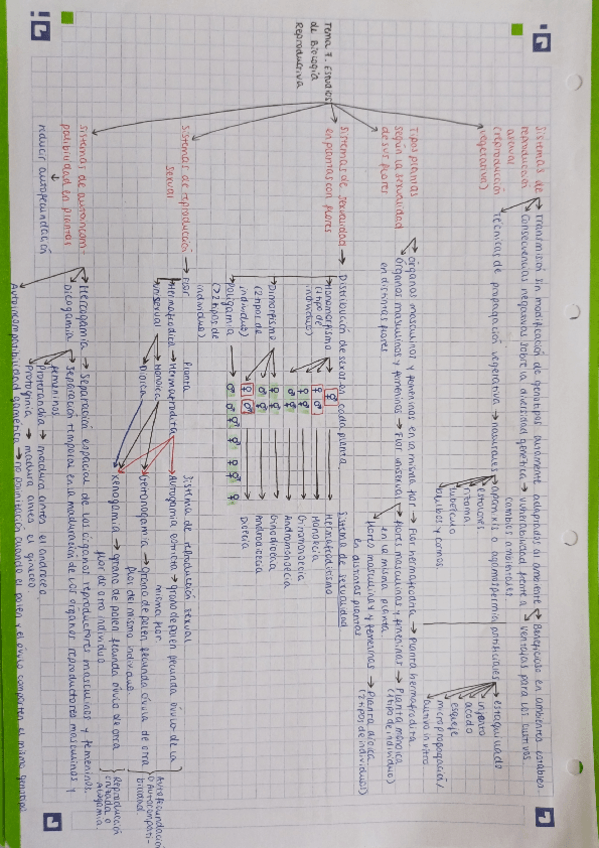 Tema 7. Estudios
de Biología
Reproductiva
Sistemas de
reproducción
asexual
(reproducción
vegetativa)
Transmisión sin modificación de genotipos puramente adaptados al ambiente → Beneficioso en ambientes estables.
Consecuencias negativas sobre la diversidad genética → vulnerabilidad frente a
cambios ambientales
ventajas para los cultivos
Técnicas de propagación vegetativa → naturales
apomixis o agamospermia
estolones
rizoma
tubérculo
bulbos y cormos.
artificiales
estaquillado
injerto
acodo
esqueje
micropropagación/
cultivo in vitro
Tipos plantas
según la sexualidad
de sus flores
Órganos masculinos y femeninos en la misma flor → Flor hermafrodita → Planta hermafrodita
Órganos masculinos y femeninos → Flor unisexual
en distintas flores
flores masculinas y femeninas → Planta monoica
en la misma planta (1 tipo de individuo)
flores masculinas y femeninas → Planta dioica
en distintas plantas (2 tipos de individuos)
Sistemas de sexualidad
en plantas con flores
→ Distribución de sexos en cada planta
Sistema de sexualidad
Monomorfismo
(1 tipo de
individuo)
Dimorfismo
(2 tipos de
individuo)
Poligamia
(>2 tipos de
individuo)
Hermafroditismo
Monoecia
Ginomonoecia
Andromonoecia
Ginodioecia
Androdioecia
Dioecia
Sistemas de reproducción
sexual
→ Flor
Planta
Sistema de reproducción sexual
Hermafrodita → Hermafrodita
Unisexual
Monoica
Dioica
Autogamia estricta → grano de polen fecunda óvulo de la
misma flor.
Geitonogamia → Grano de polen fecunda óvulo de otra
flor del mismo individuo.
Xenogamia → grano de polen fecunda óvulo de otra
flor de otro individuo
Autofecundación
o Autocompati-
bilidad
Reproducción
cruzada o
Alogamia.
Sistemas de autoincom-
patibilidad en plantas
↓
reducir autofecundación
Hercogamia → Separación espacial de los órganos reproductores masculinos y femeninos.
Dicogamia → Separación temporal en la maduración de los órganos reproductores masculinos y
femeninos.
Protandria → madura antes el androceo.
Protoginia → madura antes el gineceo.
Autoincompatibilidad gamética → no polinización cuando el polen y el óvulo comparten el mismo genotipo